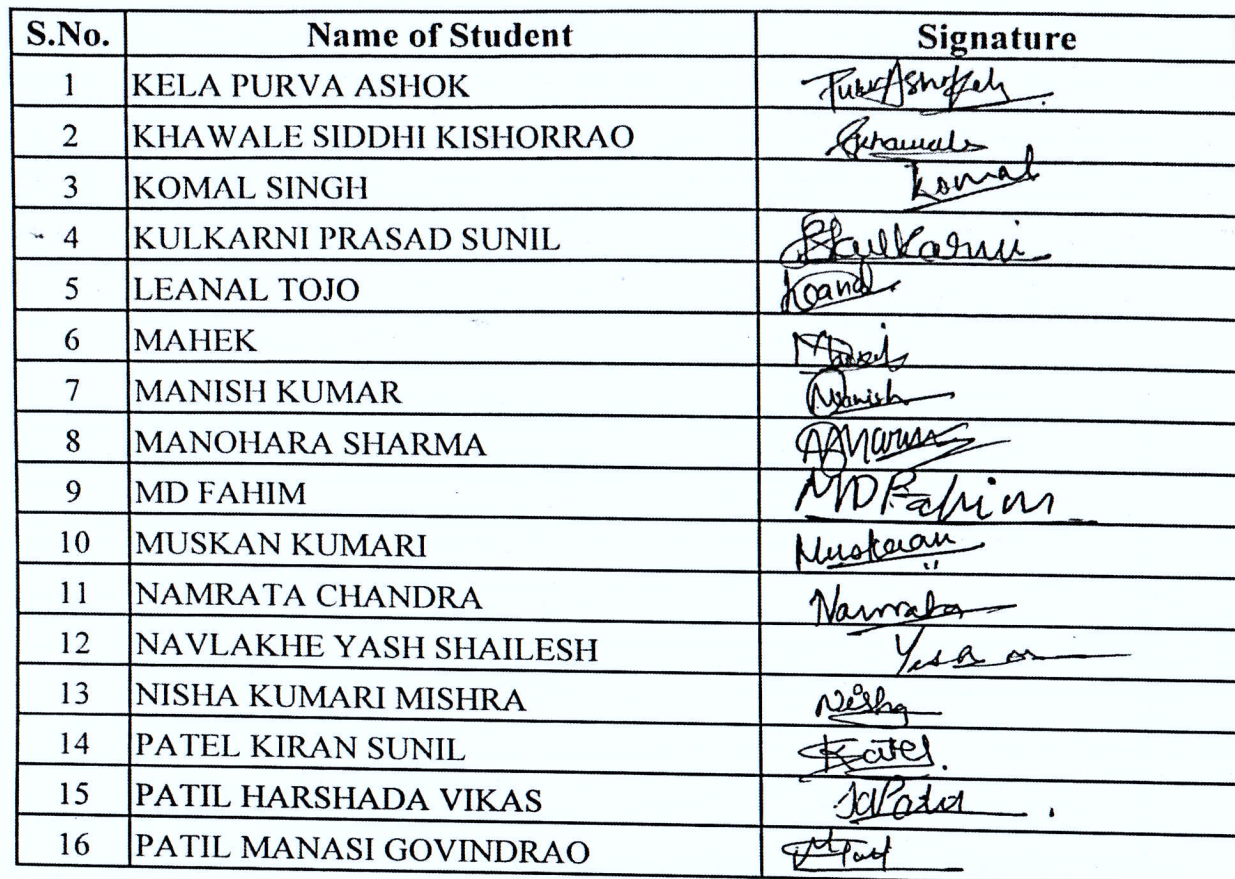 S.No. Name of Student Signature
1 KELA PURVA ASHOK
2 KHAWALE SIDDHI KISHORRAO
3 KOMAL SINGH Komal
4 KULKARNI PRASAD SUNIL SKulkarni
5 LEANAL TOJO
6 MAHEK
7 MANISH KUMAR Manish
8 MANOHARA SHARMA
9 MD FAHIM MD Fahim
10 MUSKAN KUMARI Muskaan
11 NAMRATA CHANDRA Namrata
12 NAVLAKHE YASH SHAILESH Yash
13 NISHA KUMARI MISHRA Nisha
14 PATEL KIRAN SUNIL KPatel.
15 PATIL HARSHADA VIKAS
16 PATIL MANASI GOVINDRAO